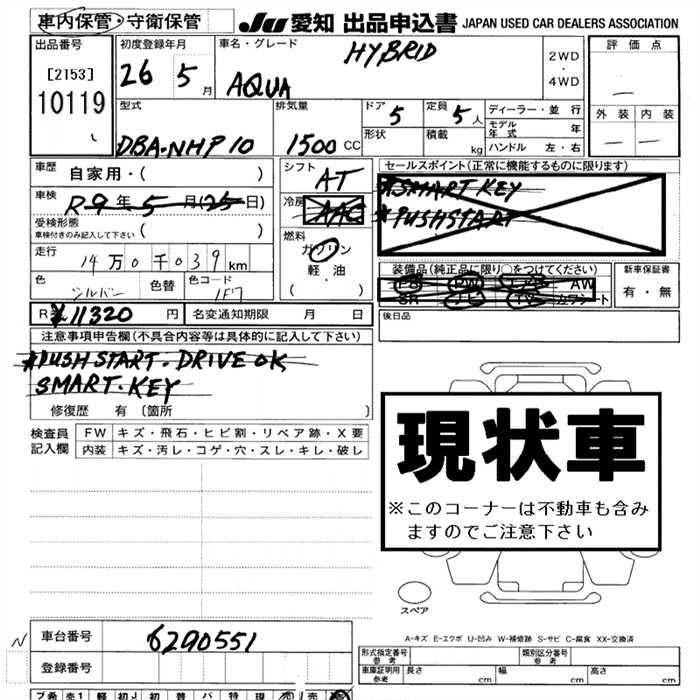 車内保管・守衛保管
JU 愛知 出品申込書 JAPAN USED CAR DEALERS ASSOCIATION
出品番号 初度登録年月 車名・グレード 評価点
[2153] 26 5月 AQUA HYBRID 2WD・4WD
10119
外装 内装
型式 排気量 ドア 5 定員 5人 ディーラー・並行
DBA-NHP10 1500CC 形状 積載 kg モデル年式 年
ハンドル 左・右
車歴 自家用・( ) シフト AT セールスポイント(正常に機能するものに限ります)
車検 R9年5月(25日) 冷房 AAC *SMART KEY
受検形態 ( ) *PUSHSTART
車検付きのみ記入して下さい
燃料 ガソリン 軽油 ( ・ )
走行 14万0千039km
色 シルバー 色替 色コード 1F7
装備品(純正品に限り○をつけてください) 新車保証書
AW 有・無
SR TV カワシート
R ¥11320円 名変通知期限 月 日 後日品
注意事項申告欄(不具合内容等は具体的に記入して下さい)
*PUSHSTART.DRIVE OK
SMART.KEY
修復歴 有〔箇所 〕
検査員記入欄 FW キズ・飛石・ヒビ割・リペア跡・X要
内装 キズ・汚レ・コゲ・穴・スレ・キレ・破レ
現状車
※このコーナーは不動車も含み
ますのでご注意下さい
スペア
A-キズ E-エクボ U-凹み W-補修跡 S-サビ C-腐食 XX-交換済
N 車台番号 6290551
登録番号
形式指定番号 参考 類別区分番号 参考
車庫証明用 参考 長さ cm 幅 cm 高さ cm